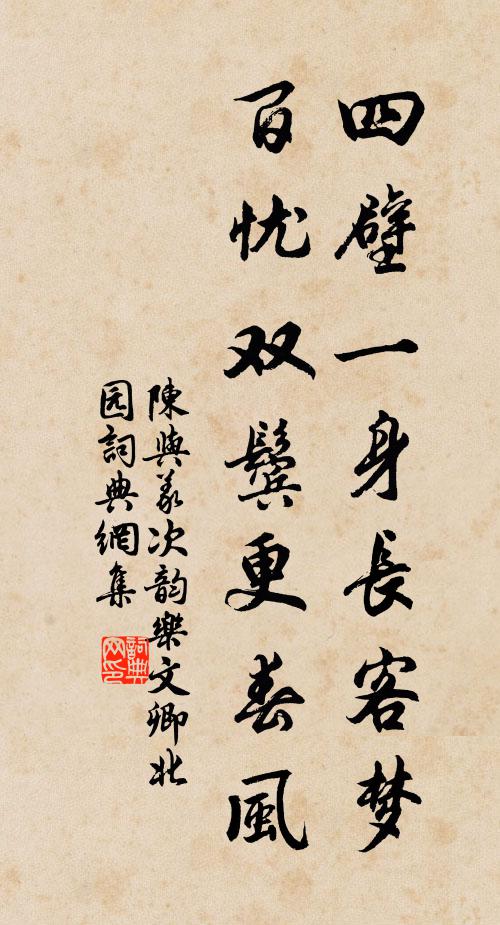 四壁一身長客梦
百忧双鬓更春風
陳與義次韵樂文卿北
园詞典網集
詞典
网印